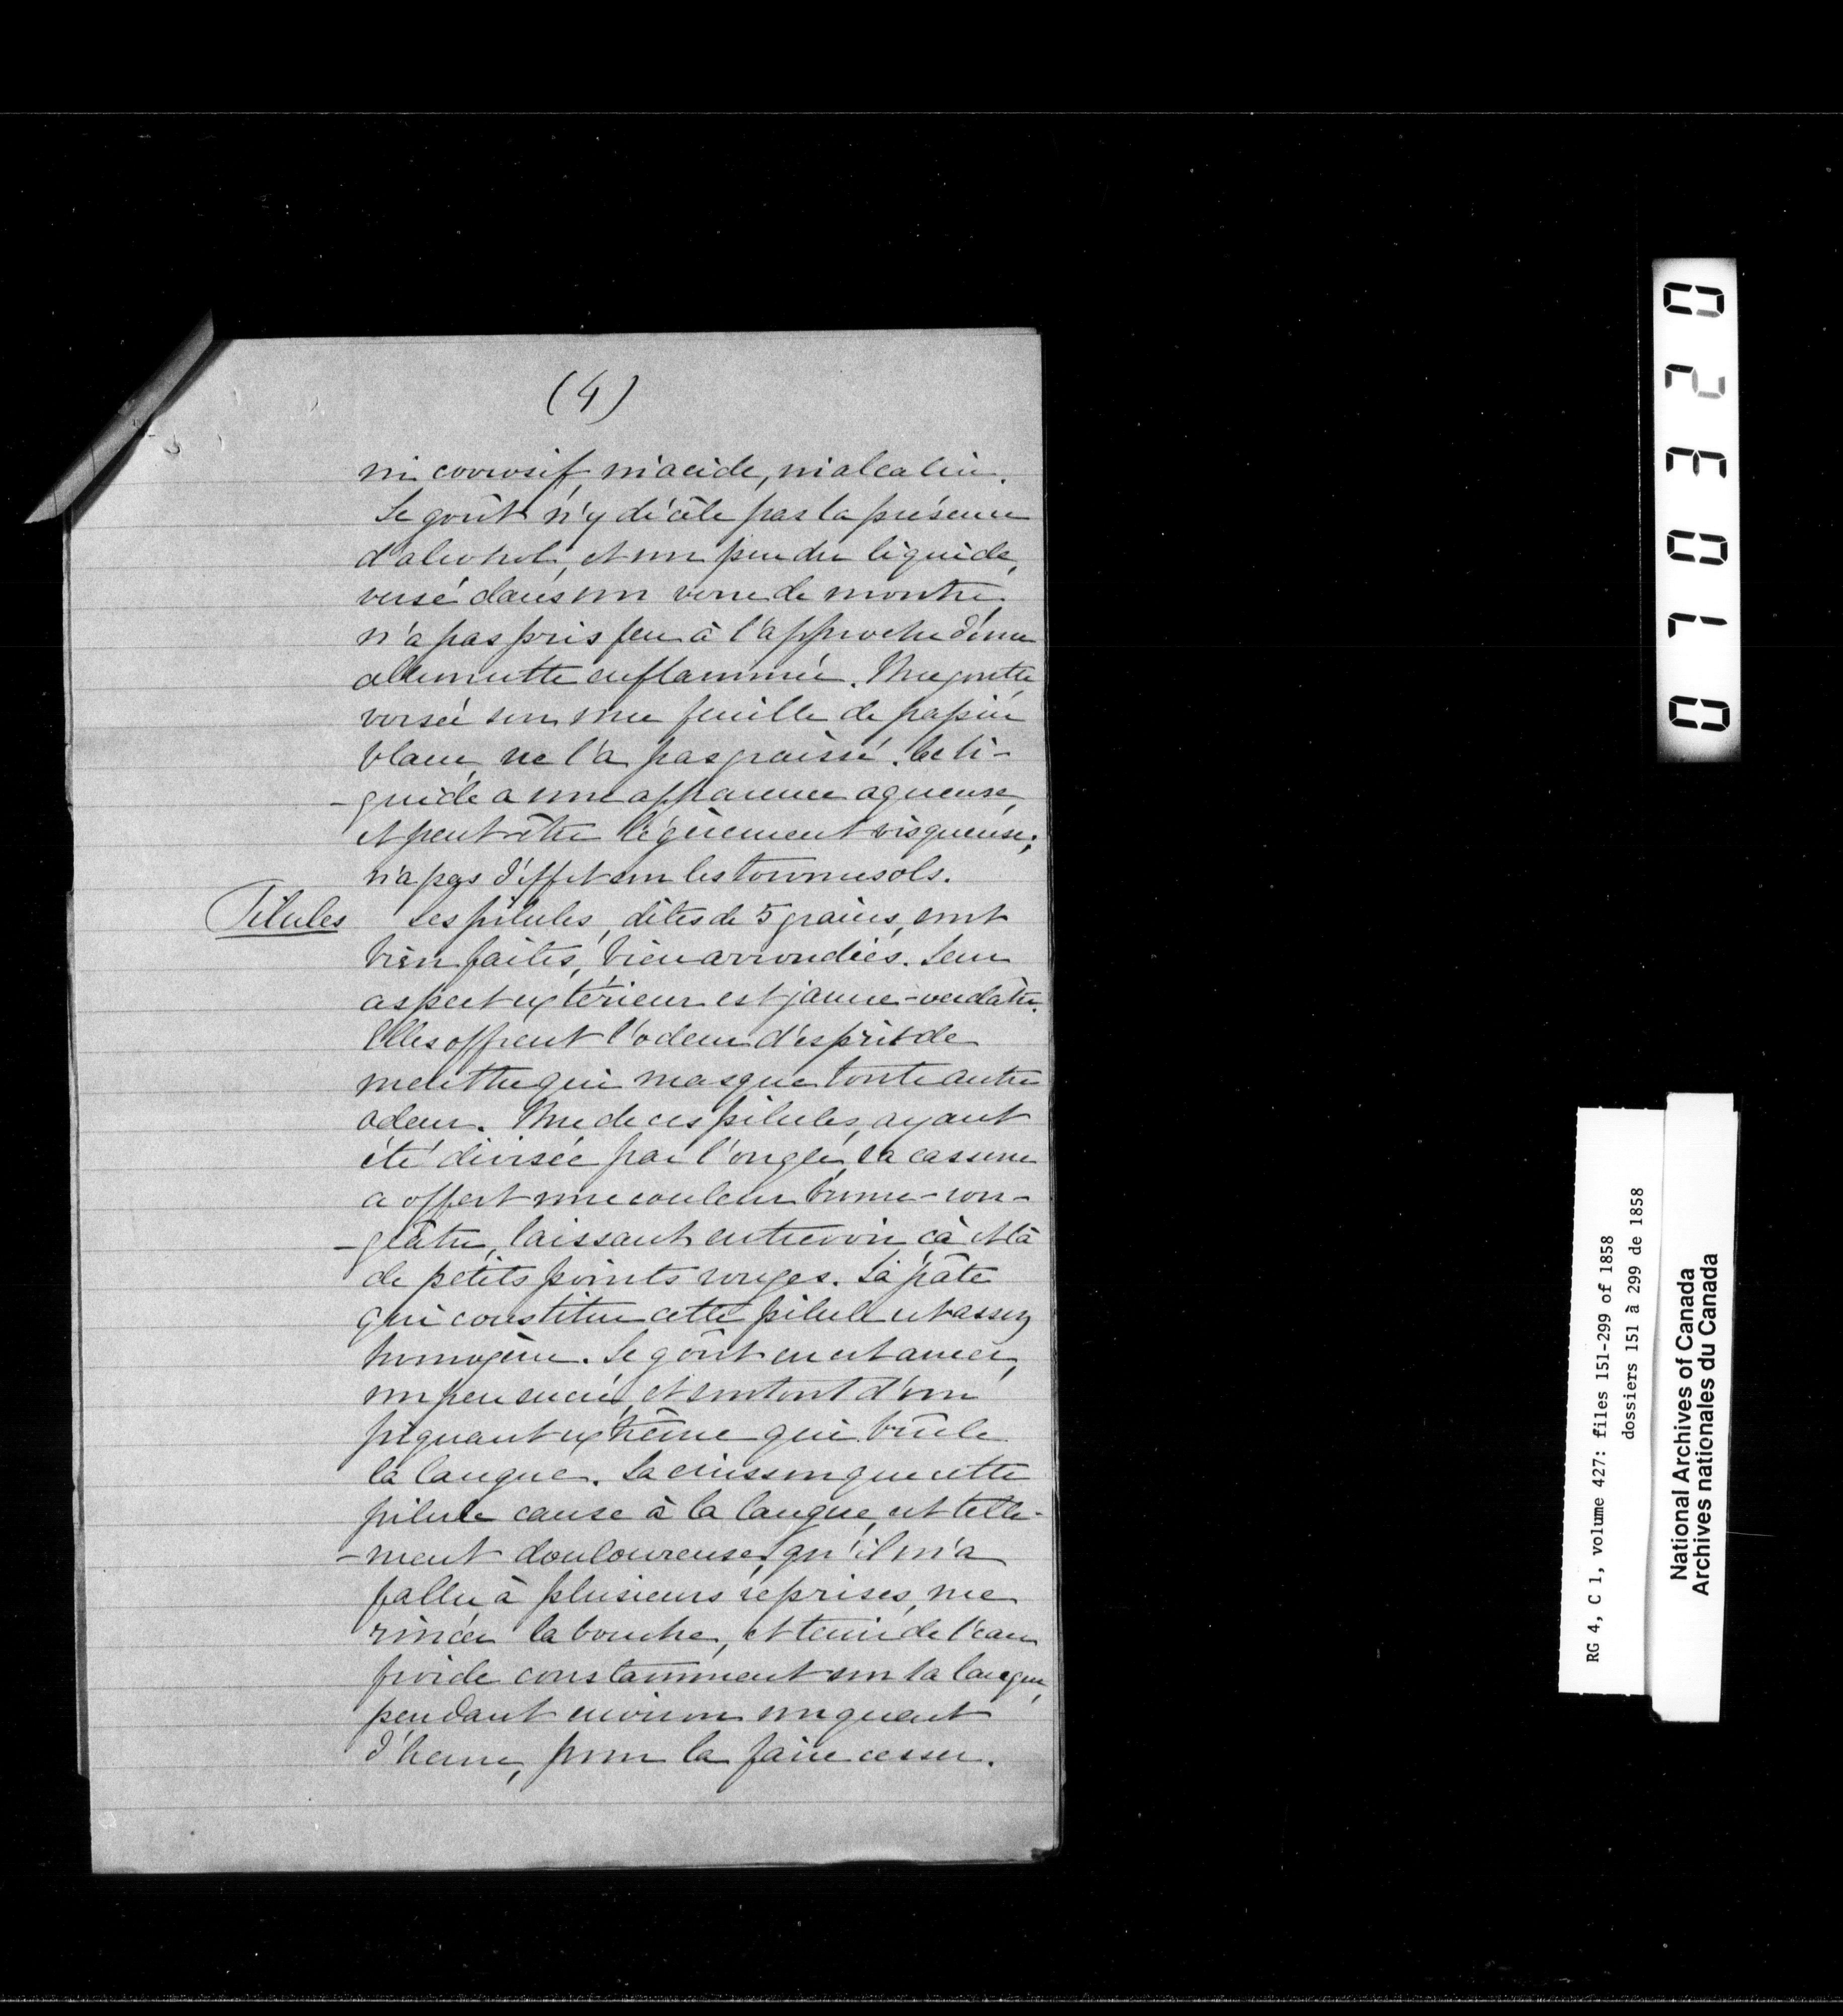 (4)
ni corrosif, ni acide, ni alcalin.
Le goût n'y décèle pas la présence
d'alcohol, et un peu du liquide,
versé dans un verre de montre,
n'a pas pris feu à l'approche d'une
allumette enflammée. Une goutte
versée sur une feuille de papier
blanc, ne l'a pas graissé. Ce li-
-quide a une apparence aqueuse,
et peut-être légèrement visqueuse;
n'a pas d'effet sur les tournesols.
Pilules Les pilules, dites de 5 grains, sont
bien faites, bien arrondies. Leur
aspect extérieur est jaune-verdâtre.
Elles offrent l'odeur d'esprit de
menthe qui masque toute autre
odeur. Une de ces pilules, ayant
été divisée par l'ongle, la cassure
a offert une couleur brune-rou-
-geâtre, laissant entrevoir çà et là
de petits points rouges. La pâte
qui constitue cette pilule est assez
homogène. Le goût en est amer,
un peu sucré, et surtout d'un
piquant extrême qui brûle
la langue. La cuisson que cette
pilule cause à la langue, est telle-
-ment douloureuse, qu'il m'a
fallu à plusieurs reprises, me
rincer la bouche, et tenir de l'eau
froide constamment sur la langue,
pendant environ un quart
d'heure, pour la faire cesser.
070320
RG 4, C 1, volume 427: files 151-299 of 1858
dossiers 151 à 299 de 1858
National Archives of Canada
Archives nationales du Canada